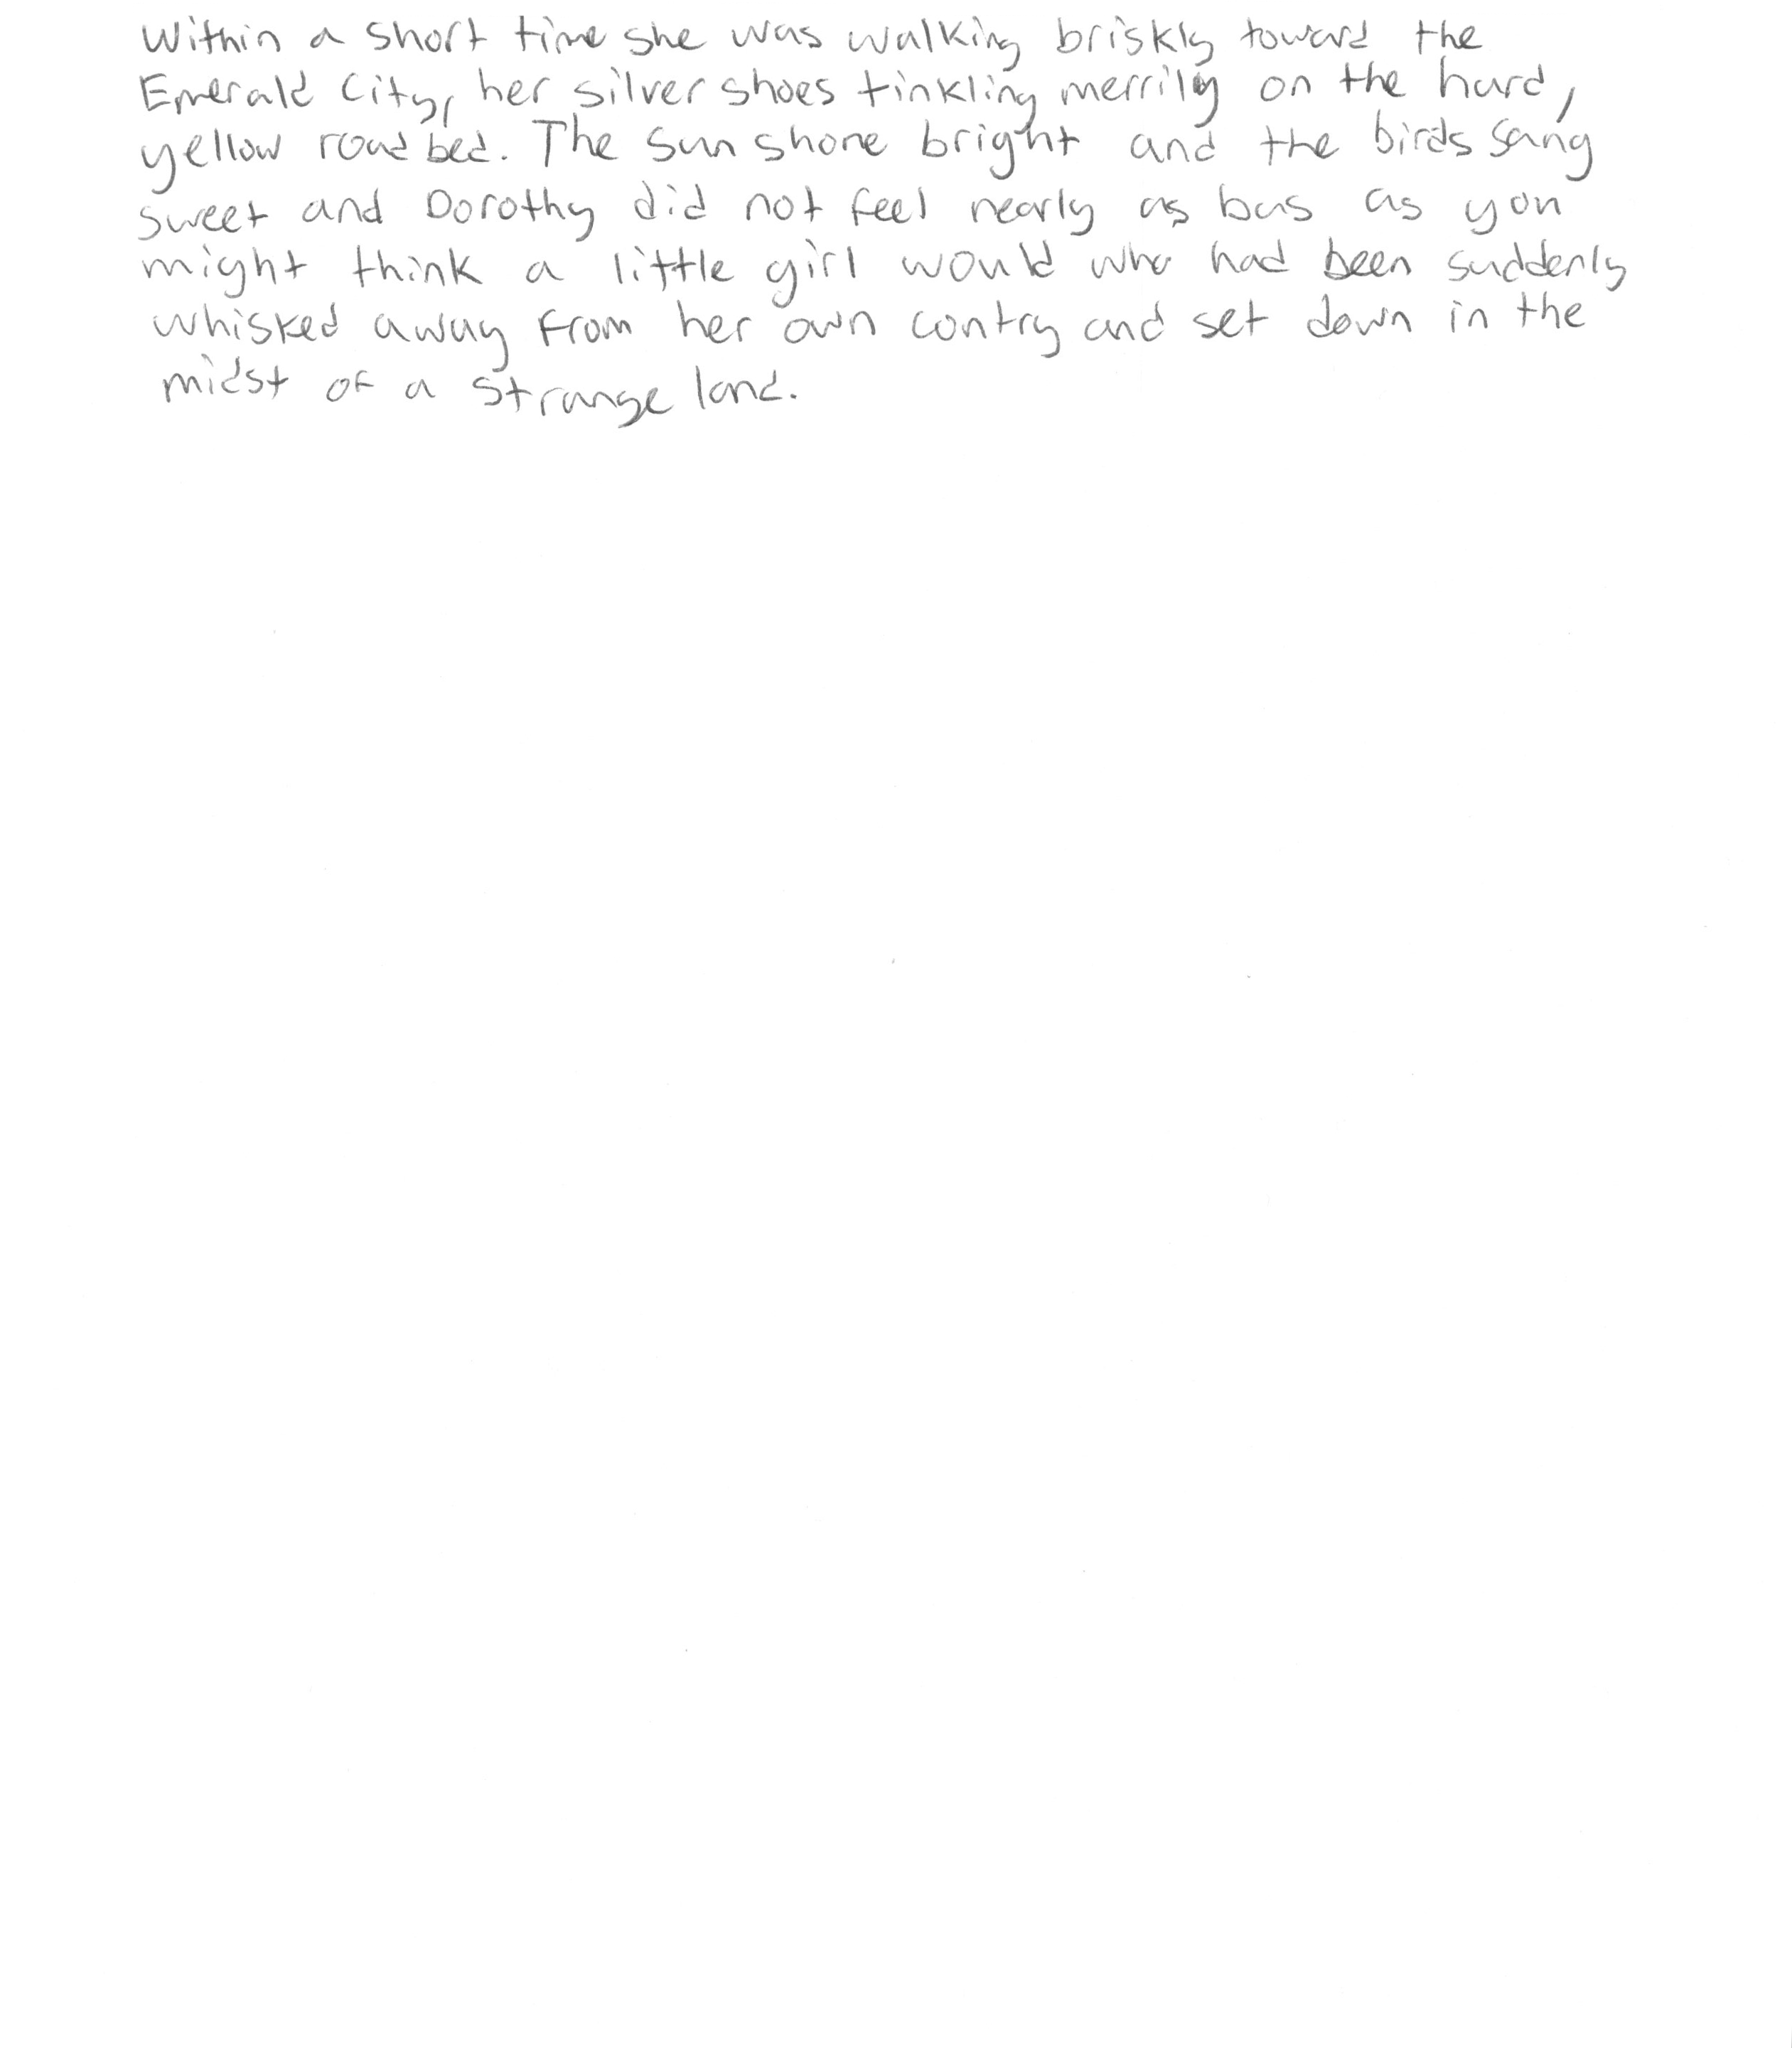 Within a short time she was walking briskly toward the
Emerald City, her silver shoes tinkling merrily on the hard,
yellow road bed. The sun shone bright and the birds sang
sweet and Dorothy did not feel nearly as bas as you
might think a little girl would who had been suddenly
whisked away from her own contry and set down in the
midst of a strange land.